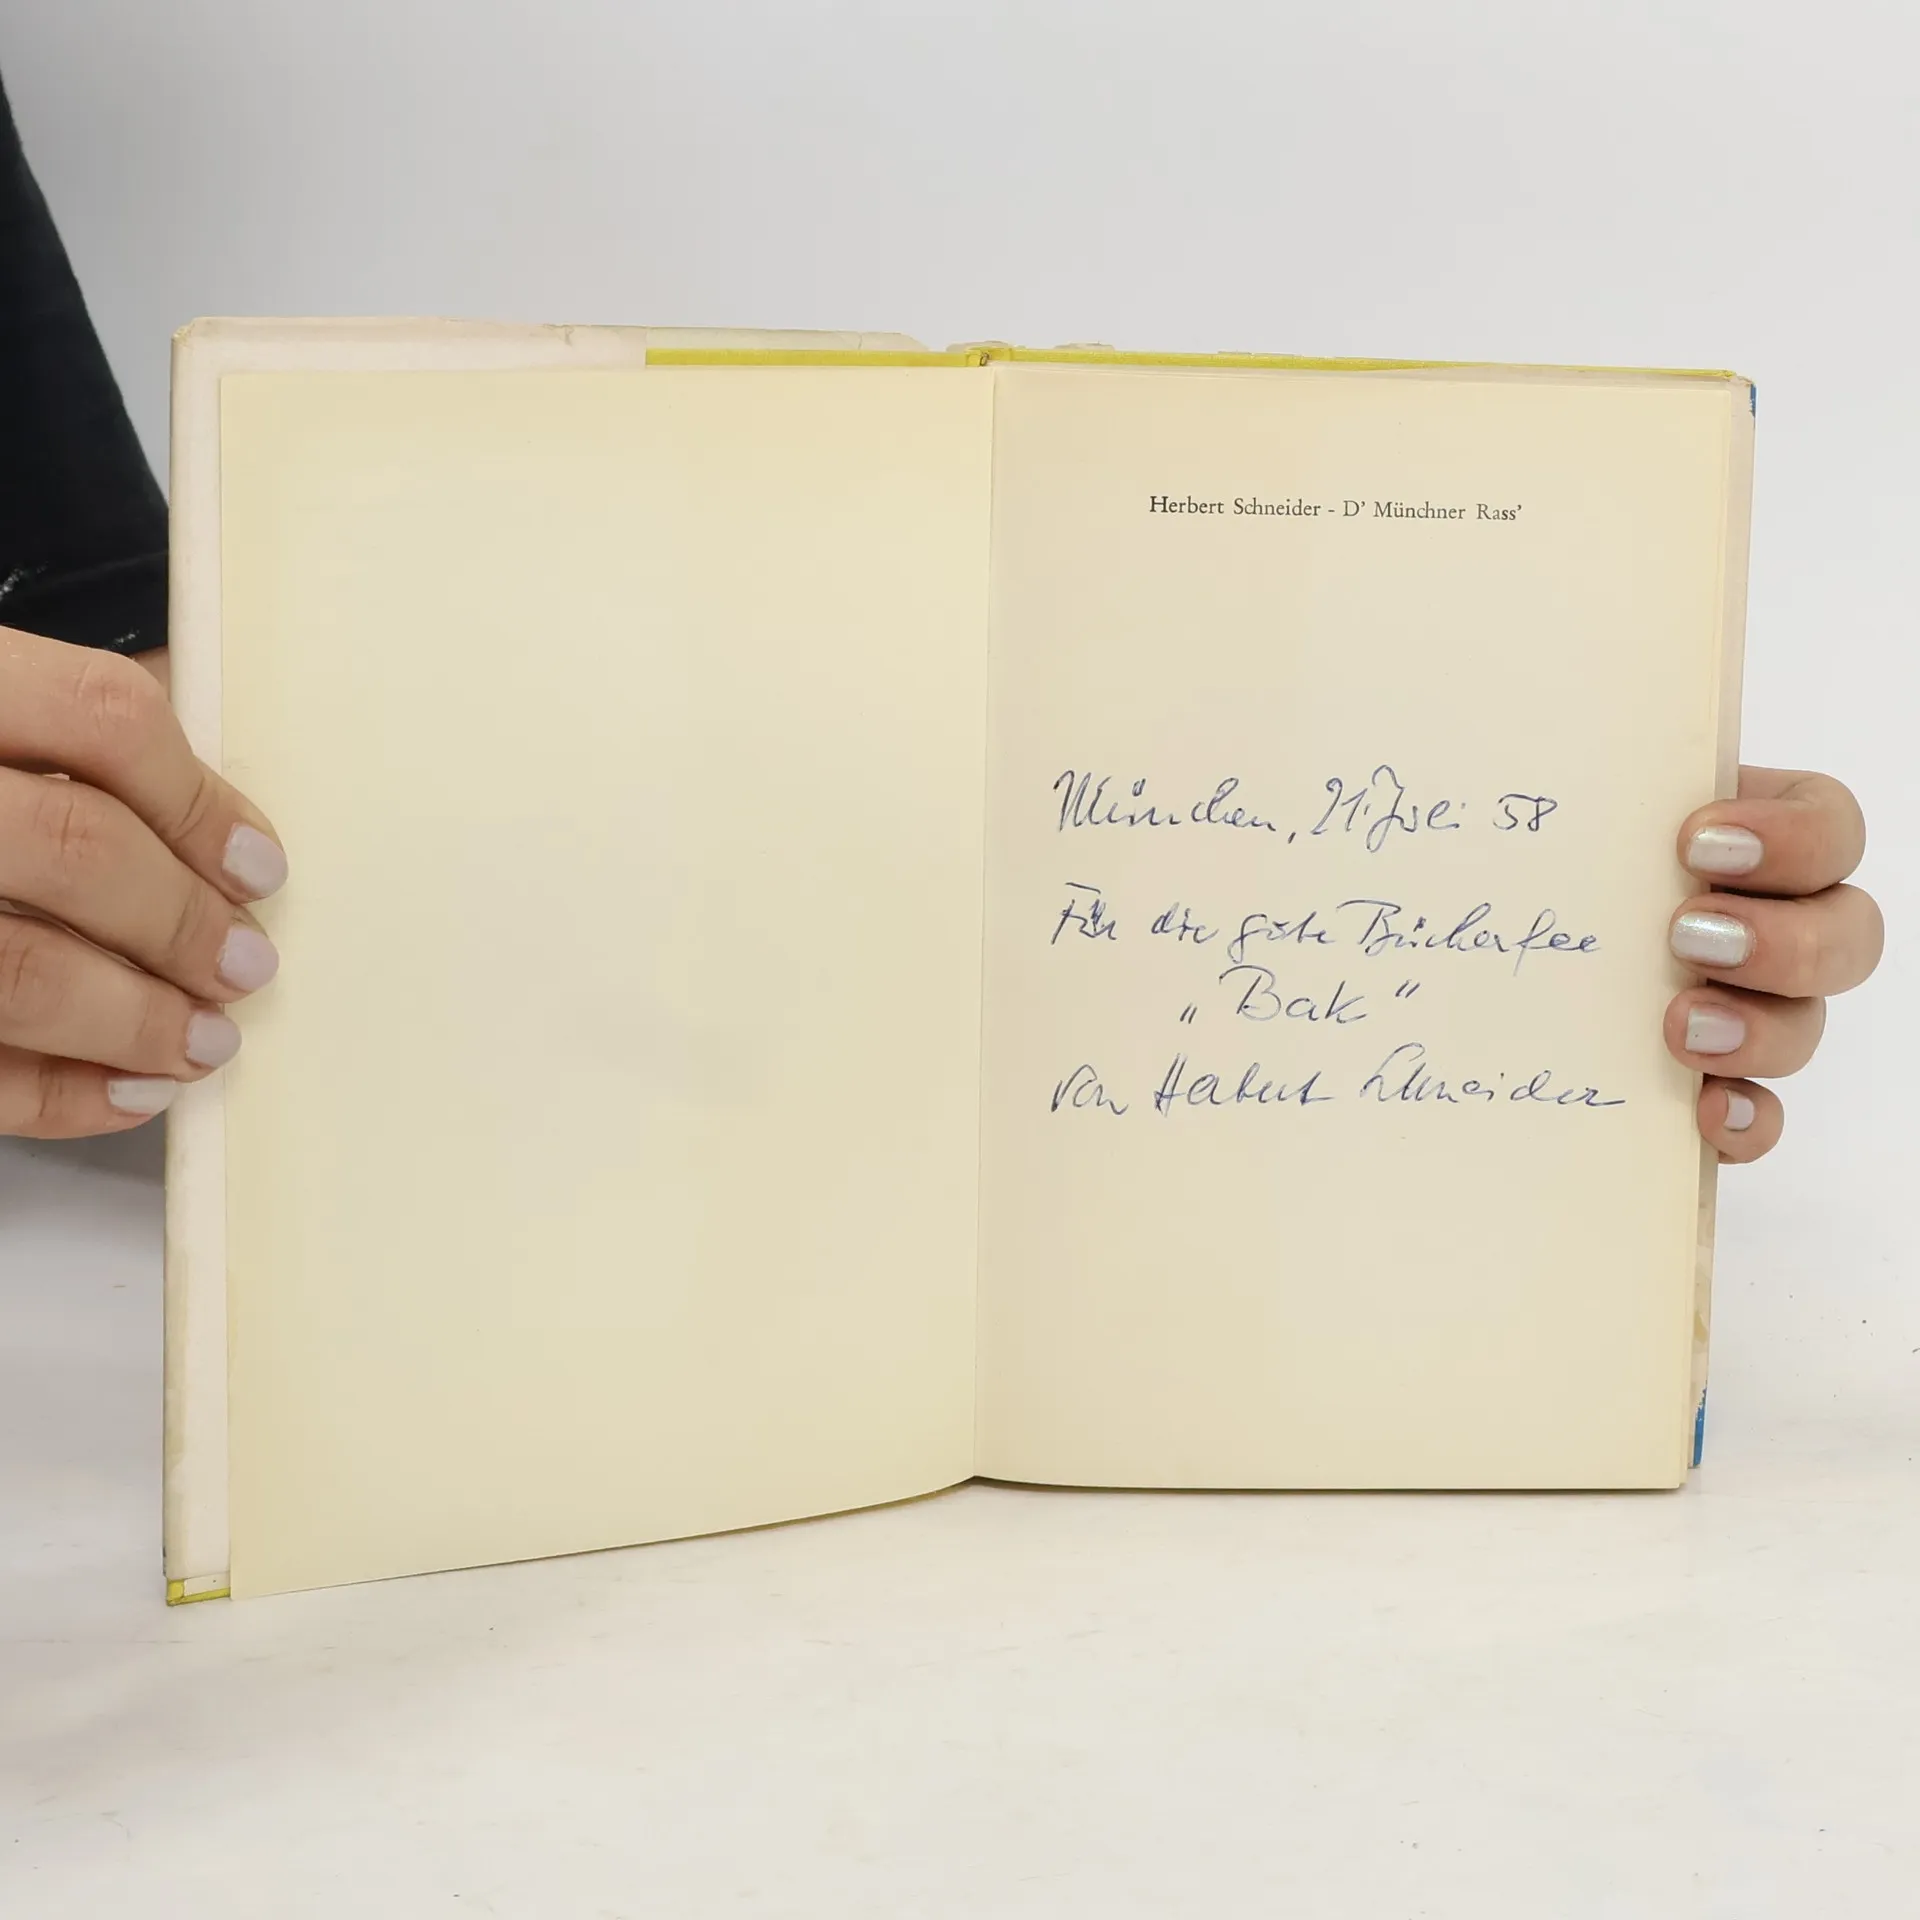 Herbert Schneider - D' Münchner Rass'
München, 21. Juli 58
Für die gute Bücherfee
„Bak"
von Herbert Schneider